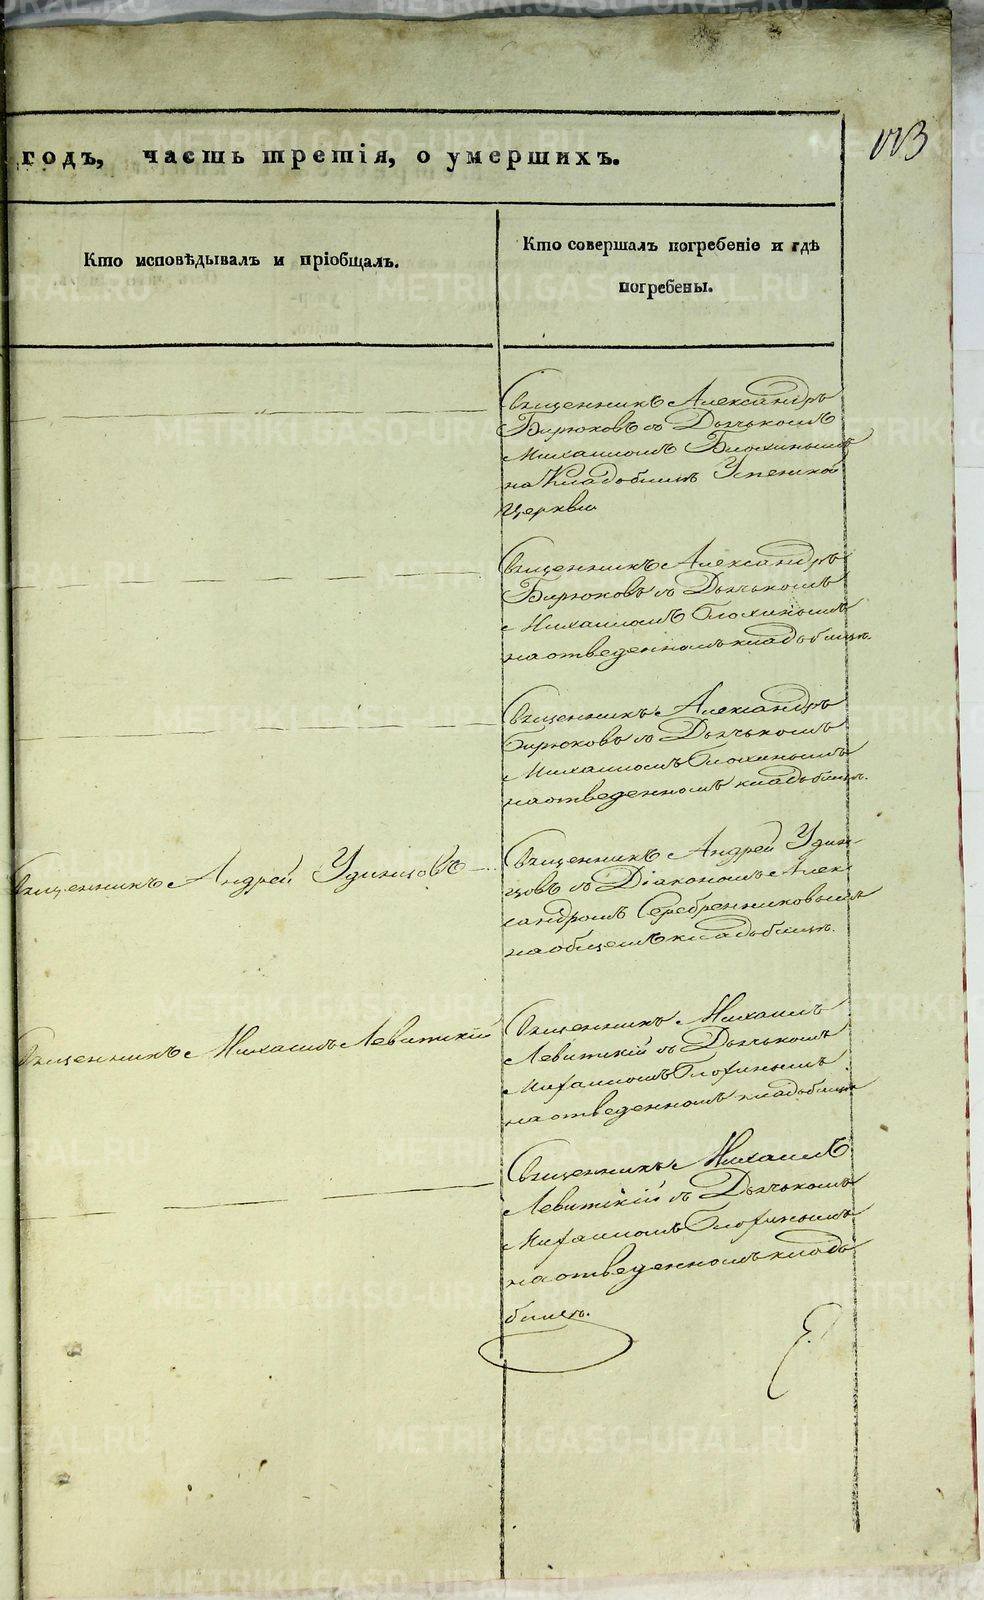 годъ, часть третія, о умершихъ.
113
Кто исповѣдывалъ и пріобщалъ.
Кто совершалъ погребеніе и гдѣ
погребены.
Священникъ Александръ
Бирюковъ съ Дьячькомъ
Михаиломъ Блохинымъ
на Кладбищѣ Успенской
Церкви
Священникъ Александръ
Бирюковъ съ Дьячькомъ
Михаиломъ Блохинымъ
на отведенномъ кладбищѣ.
Священникъ Александръ
Бирюковъ съ Дьячькомъ
Михаиломъ Блохинымъ
на отведенномъ кладбищѣ.
Священникъ Андрей Удинцовъ
Священникъ Андрей Удин-
цовъ съ Діакономъ Алек-
сандромъ Серебренниковымъ
на общемъ кладбищѣ.
Священникъ Михаилъ Левитскій
Священникъ Михаилъ
Левитскій съ Дьячькомъ
Михаиломъ Блохинымъ
на отведенномъ кладбищѣ
Священникъ Михаилъ
Левитскій съ Дьячькомъ
Михаиломъ Блохинымъ
на отведенномъ клад-
бищѣ.
METRIKI.GASO-URAL.RU